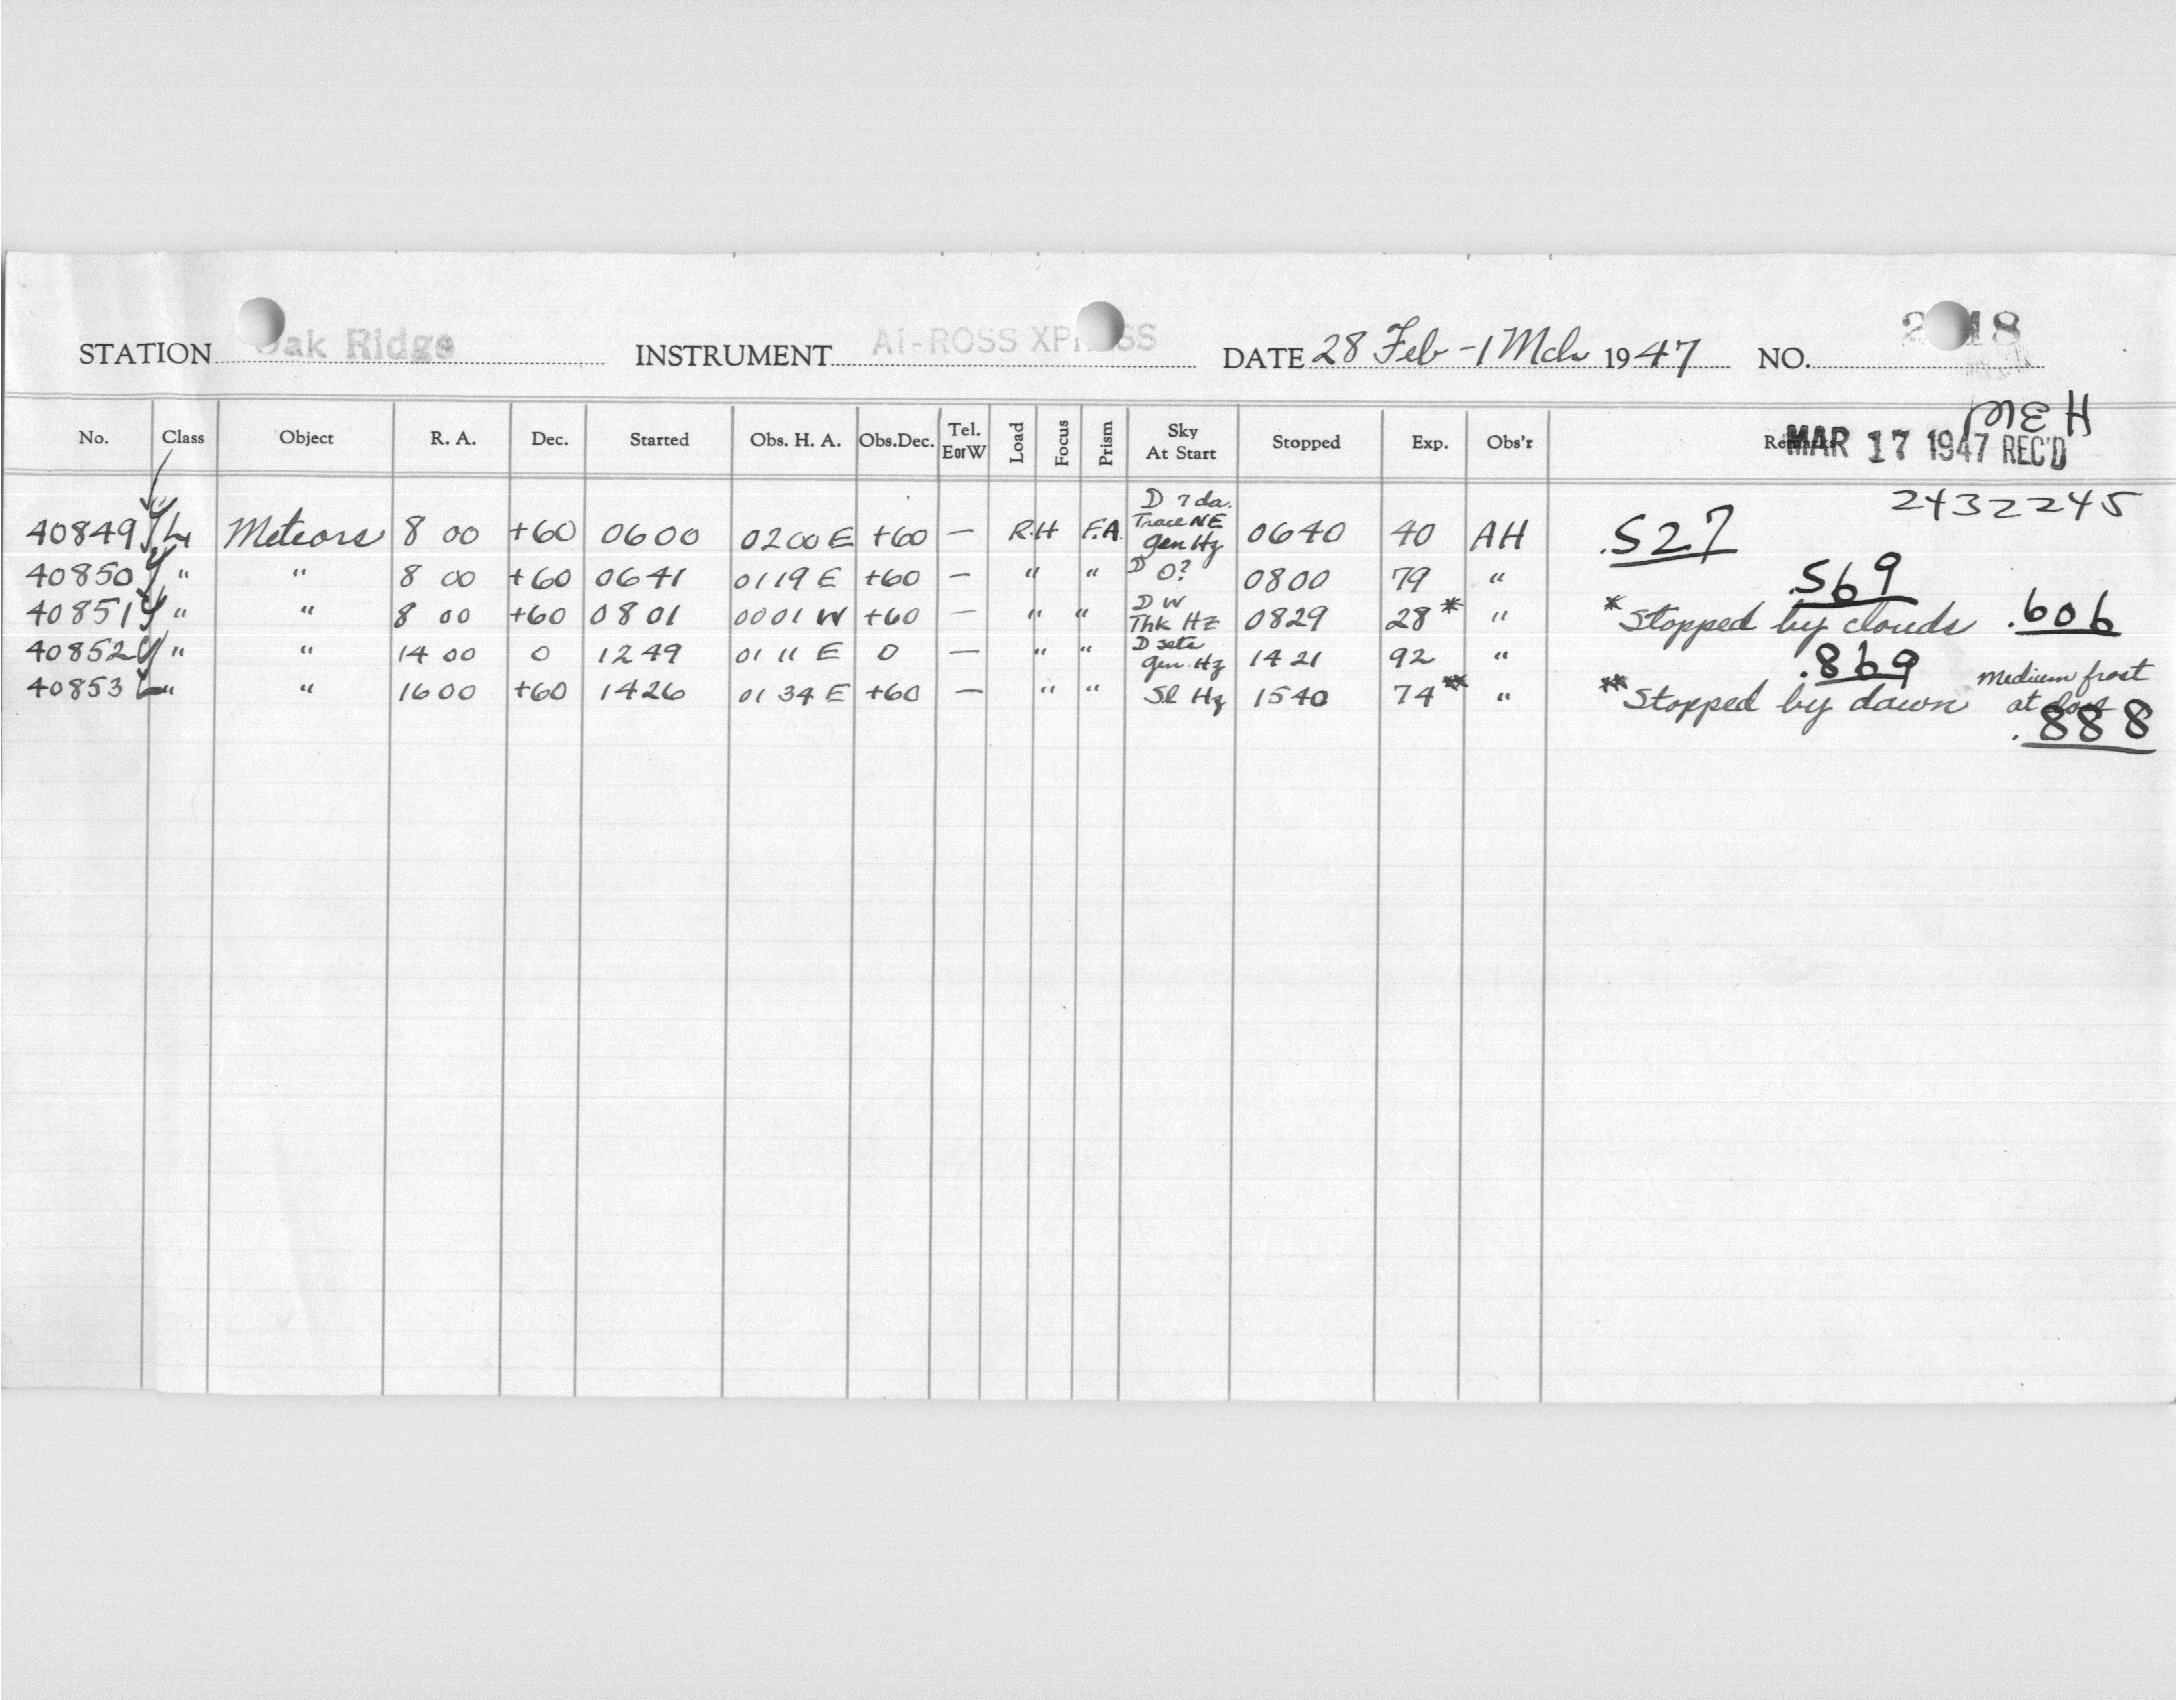 STATION Oak Ridge INSTRUMENT AI-ROSS XPRESS DATE 28 Feb - 1 Mch 1947 NO. 18
MEH
No. Class Object R. A. Dec. Started Obs. H. A. Obs.Dec. Tel. EorW Load Focus Prism Sky At Start Stopped Exp. Obs'r Remarks
MAR 17 1947 REC'D
2432245
40849 L Meteors 8 00 +60 0600 0200 E +60 — R.H F.A. D 7 da. Trace NE gen Hz 0640 40 AH .527
40850 " " 8 00 +60 0641 0119 E +60 — " " D 0? 0800 79 " .569
40851 " " 8 00 +60 0801 0001 W +60 — " " D W Thk Hz 0829 28* " *Stopped by clouds .606
40852 " " 14 00 0 1249 0111 E 0 — " " D sets gen. Hz 1421 92 " .869
40853 " " 16 00 +60 1426 0134 E +60 — " " Sl Hz 1540 74** " **Stopped by dawn medium frost at close
.888